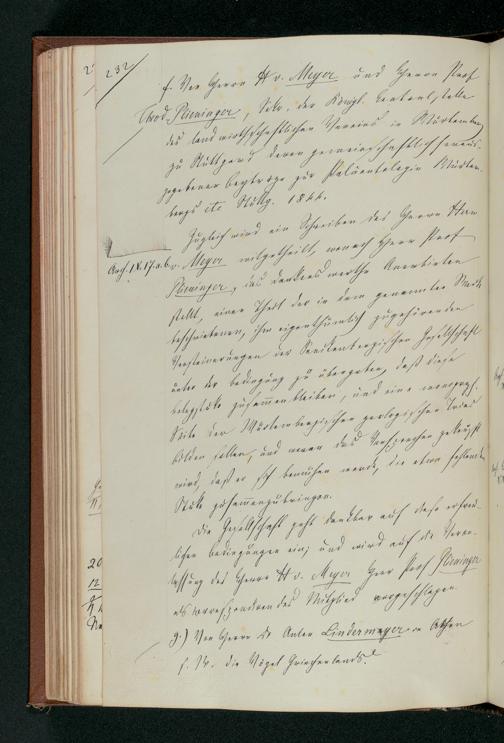 232.
f. Von Herrn H v. Meyer und Herrn Prof
Theod. Plieninger, Sekr. der Königl. Centralstelle
des landwirthschaftlichen Vereins in Würtemberg
zu Stuttgard deren gemeinschaftlich heraus-
gegebener Beyträge zur Paläontologie Würtem-
bergs etc Stuttg. 1844.
Zugleich wird ein Schreiben des Herrn Herm
v. Meyer mitgetheilt, wonach Herr Prof
Plieninger, das dankenswerthe Anerbieten
stellt, einen Theil der in dem genannten Werke
beschriebenen, ihm eigenthümlich zugehörenden
Versteinerungen der Senckenbergischen Gesellschaft
unter der Bedingung zu übergeben, daß diese
Belegstüke zusammenbleiben, und eine
Suite der Würtembergischen geologischen Trias
bilden sollen, und woran das Versprechen geknüpft
wird, daß er sich bemühen werde, die etwa fehlenden
Stüke zusammenzubringen.
Die Gesellschaft geht dankbar auf diese erfreu-
lichen Bedingungen ein, und wird auf die Veran-
lassung des Herrn H v. Meyer Herr Prof Plieninger
als correspondirendes Mitglied vorgeschlagen.
g.) Von Herrn Dr Anton Lindermayer in Athen
s. W. die Vögel Griechenlands.